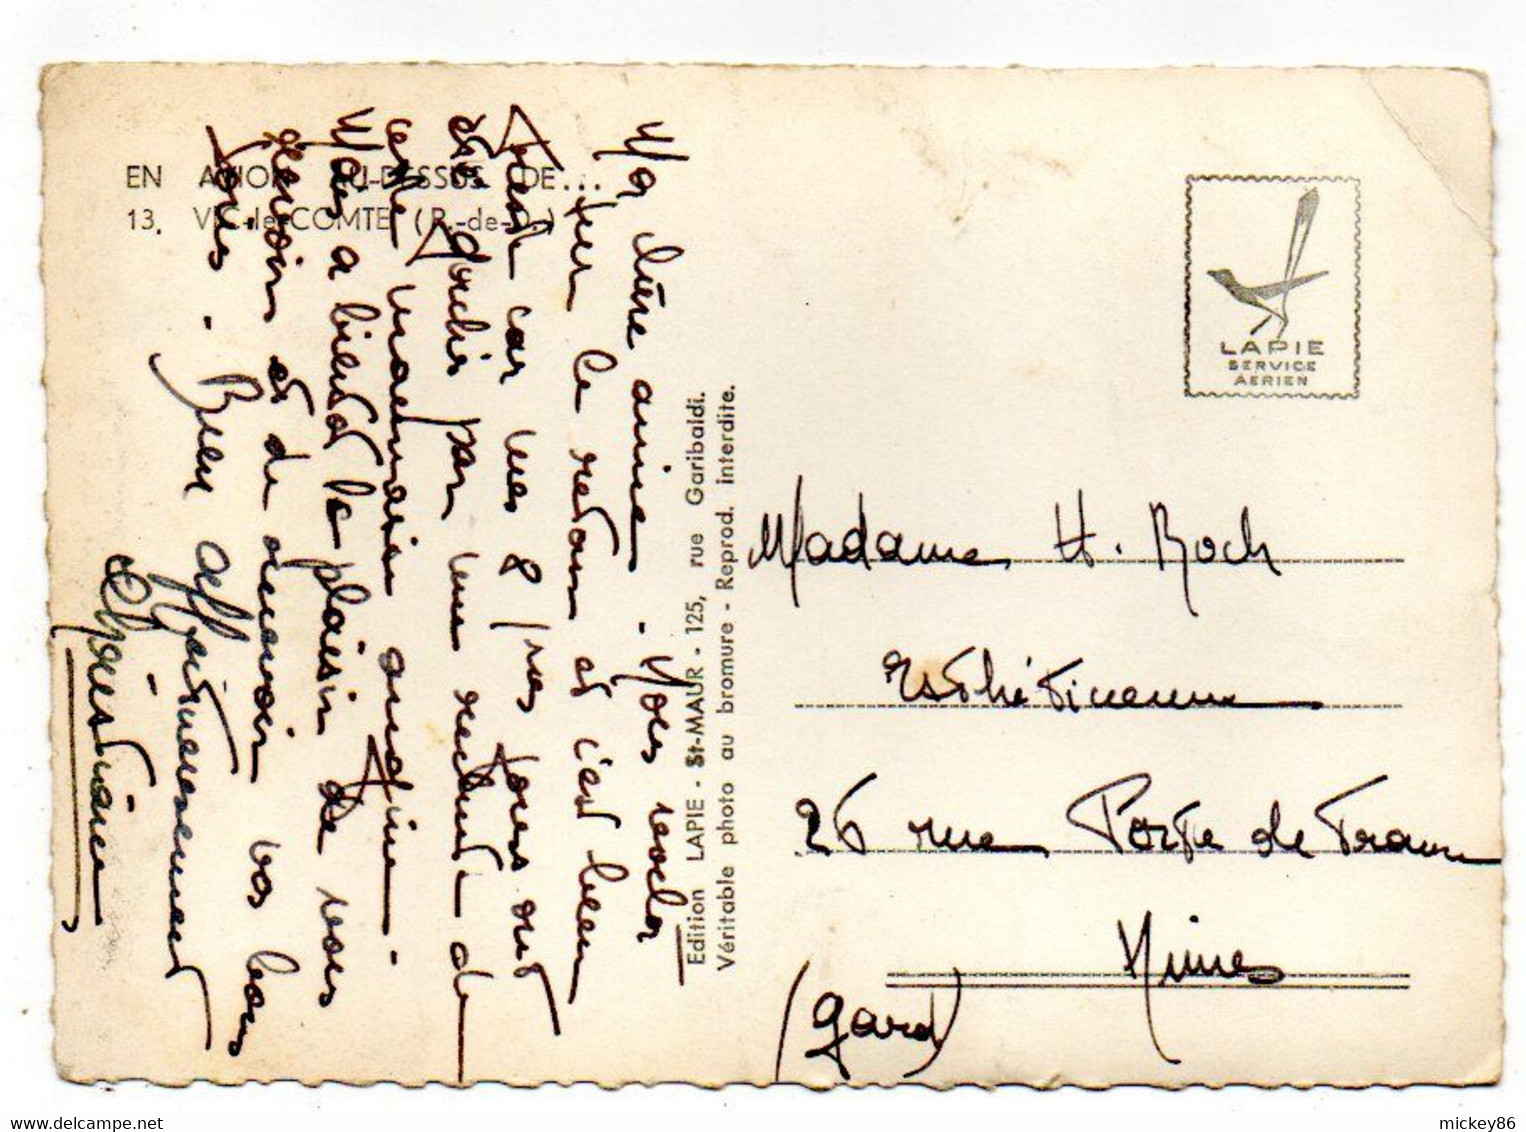 EN AVION AU-DESSUS DE...
13. VIC-le-COMTE (P.-de-D.)
Ma chère amie - Nous voilà
sur le retour et c'est bien
triste car mes 8 jours ont
été gachés par une rechute de
cette maladie
Mais a bientôt le plaisir de vous
revoir et de recevoir vos bons
soins - Bien affectueusement
Christiane
Edition LAPIE - St-MAUR - 125, rue Garibaldi.
Véritable photo au bromure - Reprod. interdite.
LAPIE
SERVICE
AERIEN
Madame H. Roch
Esthéticienne
26 rue Porte de France
Nimes
(Gard)
delcampe.net
mickey86